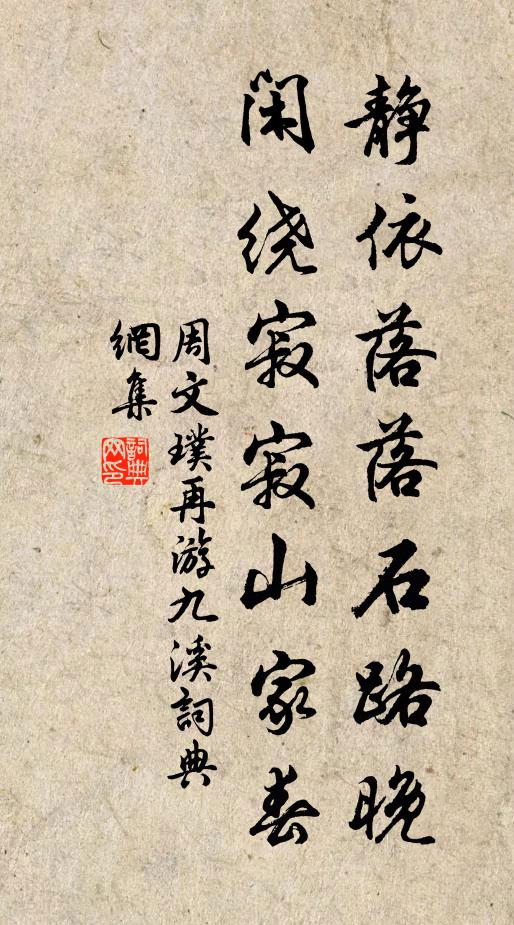 静依落落石路晚
闲绕寂寂山家春
周文璞再游九溪詞典
網集
詞典网印